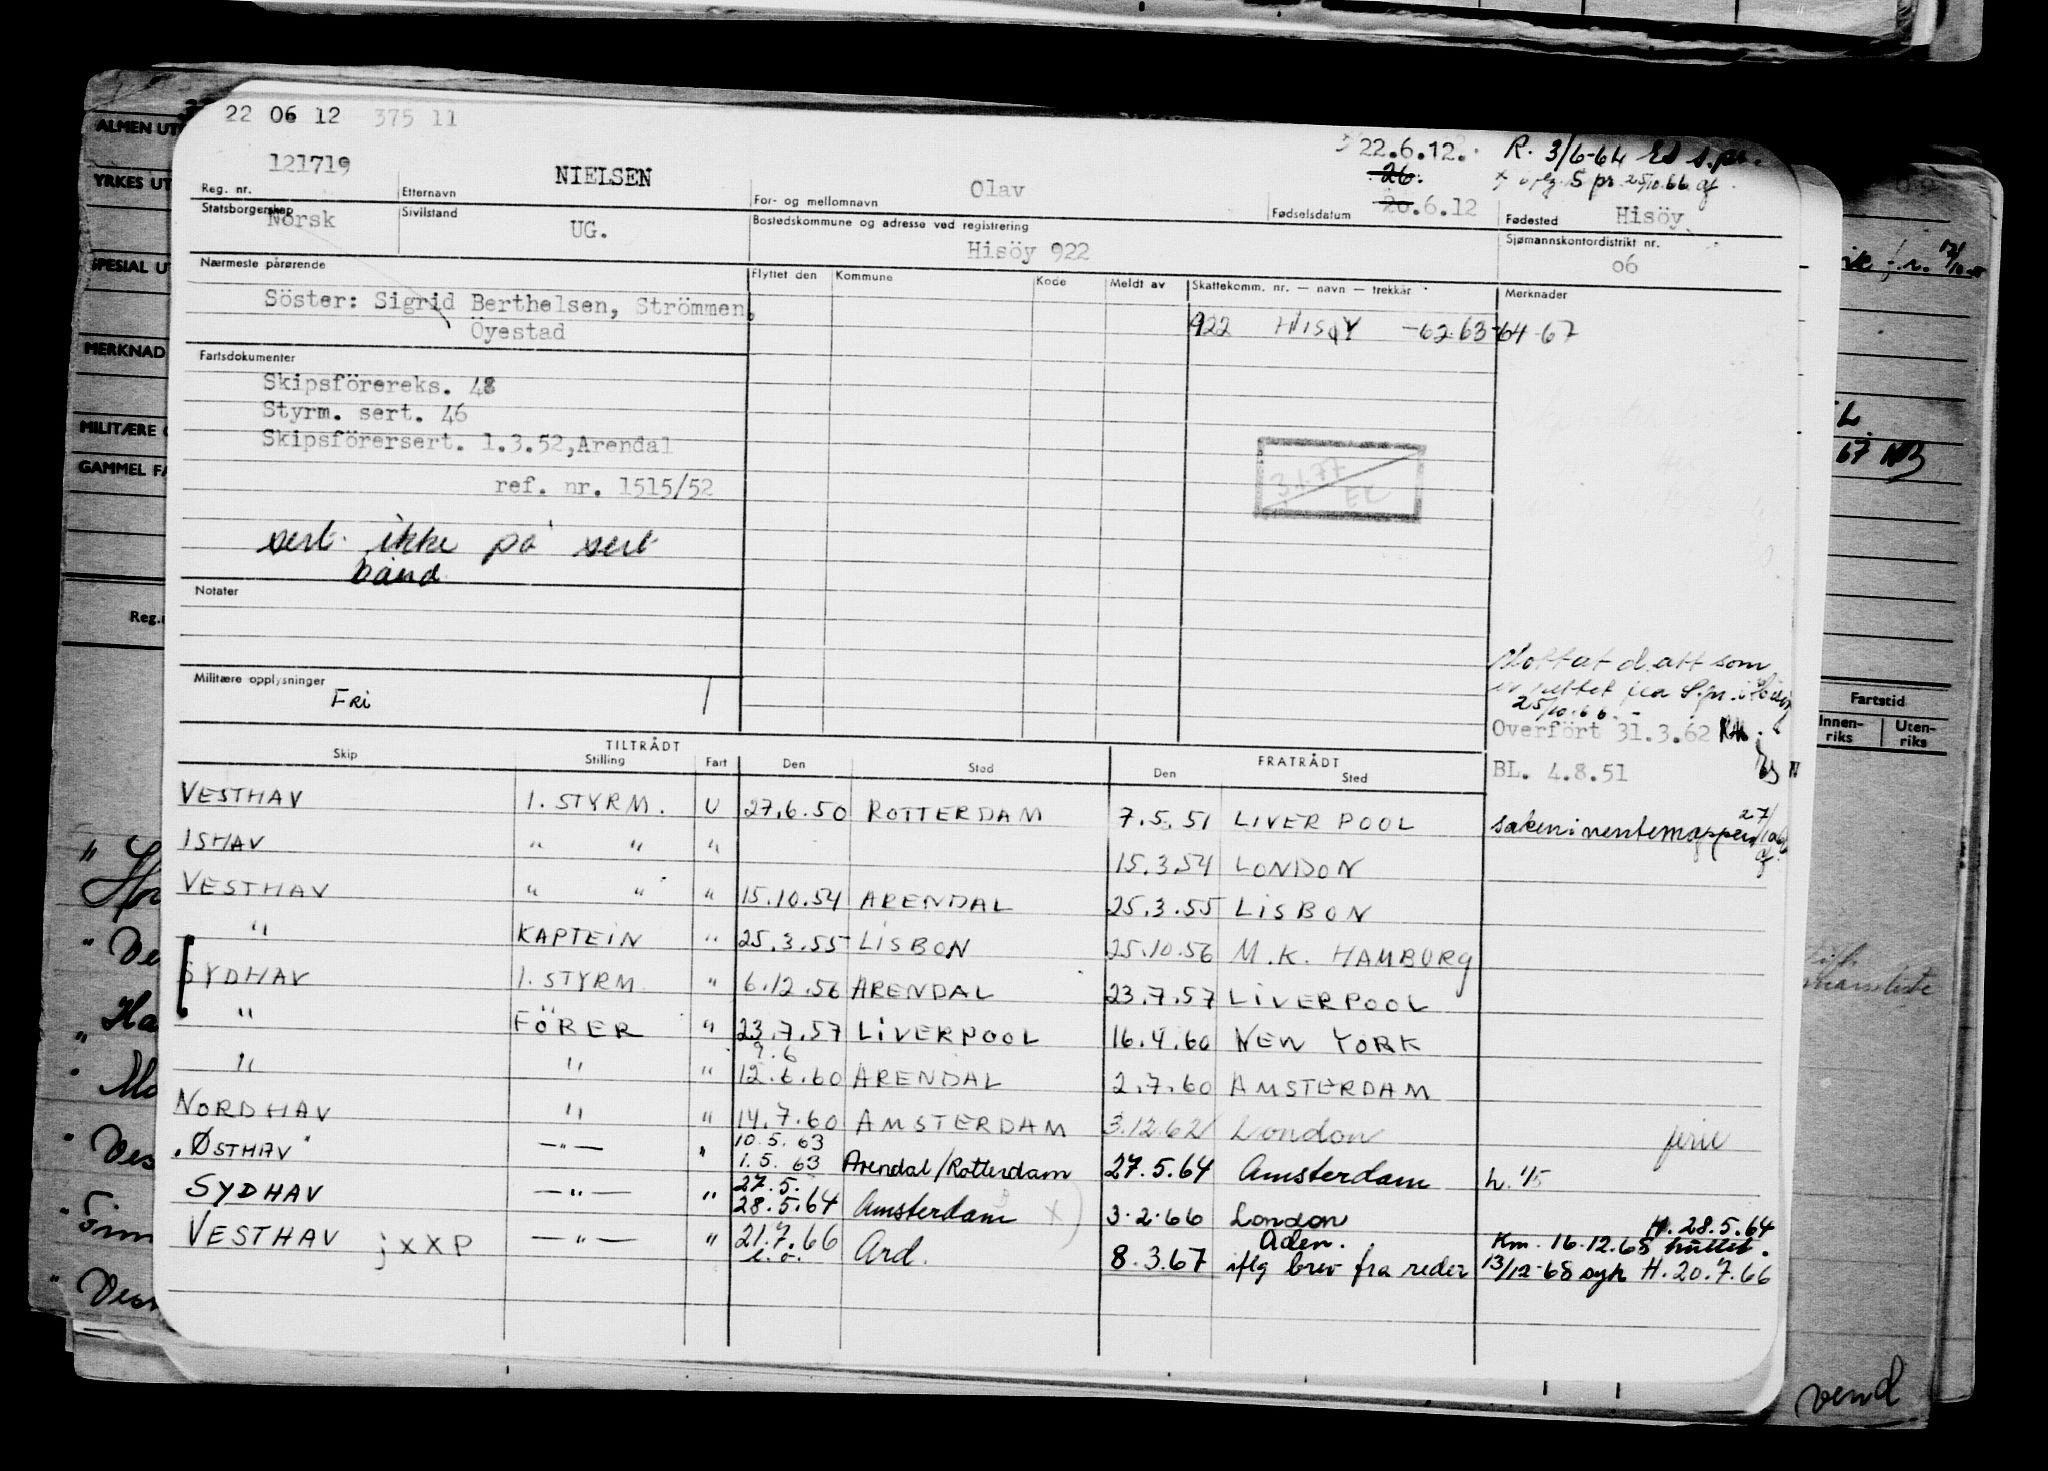 22 06 12 375 11
22.6.12. R. 3/6-64 s.pr.
26.
121719 NIELSEN Olav 20.6.12 Hisöy
Reg. nr. Etternavn For- og mellomnavn Fødselsdatum Fødested
Statsborgerskap Sivilstand Bostedskommune og adresse ved registrering Sjømannskontordistrikt nr.
Norsk UG. Hisöy 922 06
Nærmeste pårørende Flyttet den Kommune Kode Meldt av Skattekomm. nr. — navn — trekkår Merknader
Söster: Sigrid Berthelsen, Strömmen,
Öyestad
922 HISØY -62-63-64-67
Fartsdokumenter
Skipsförereks. 48
Styrm. sert. 46
Skipsförersert. 1.3.52,Arendal
ref. nr. 1515/52
3.1.77
EL
sert. ikke på sert
bånd
Notater
Militære opplysninger
Fri
25/10.66.
Overfört 31.3.62
BL. 4.8.51
TILTRÅDT FRATRÅDT
Skip Stilling Fart Den Sted Den Sted
VESTHAV 1. STYRM. U 27.6.50 ROTTERDAM 7.5.51 LIVERPOOL
ISHAV " " " 15.3.54 LONDON
VESTHAV " " " 15.10.54 ARENDAL 25.3.55 LISBON
" KAPTEIN " 25.3.55 LISBON 25.10.56 M.K. HAMBURG
SYDHAV 1. STYRM " 6.12.56 ARENDAL 23.7.57 LIVERPOOL
" FÖRER " 23.7.57 LIVERPOOL 16.4.60 NEW YORK
9.6
" " " 12.6.60 ARENDAL 2.7.60 AMSTERDAM
NORDHAV " " 14.7.60 AMSTERDAM 3.12.62 London ferie
10.5.63
"ØSTHAV" —"— " 1.5.63 Arendal/Rotterdam 27.5.64 Amsterdam
27.5.
SYDHAV —"— " 28.5.64 Amsterdam X 3.2.66 London H. 28.5.64
VESTHAV jxxP —"— " 21.7.66 Ard. 8.3.67 Aden. iflg brev fra reder
13/12-68 syk H. 20.7.66
ALMEN UT
YRKES UT
SPESIAL UT
MERKNAD
MILITÆRE
GAMMEL FA
Reg.
Fartstid
Innen-riks Uten-riks
67
vend